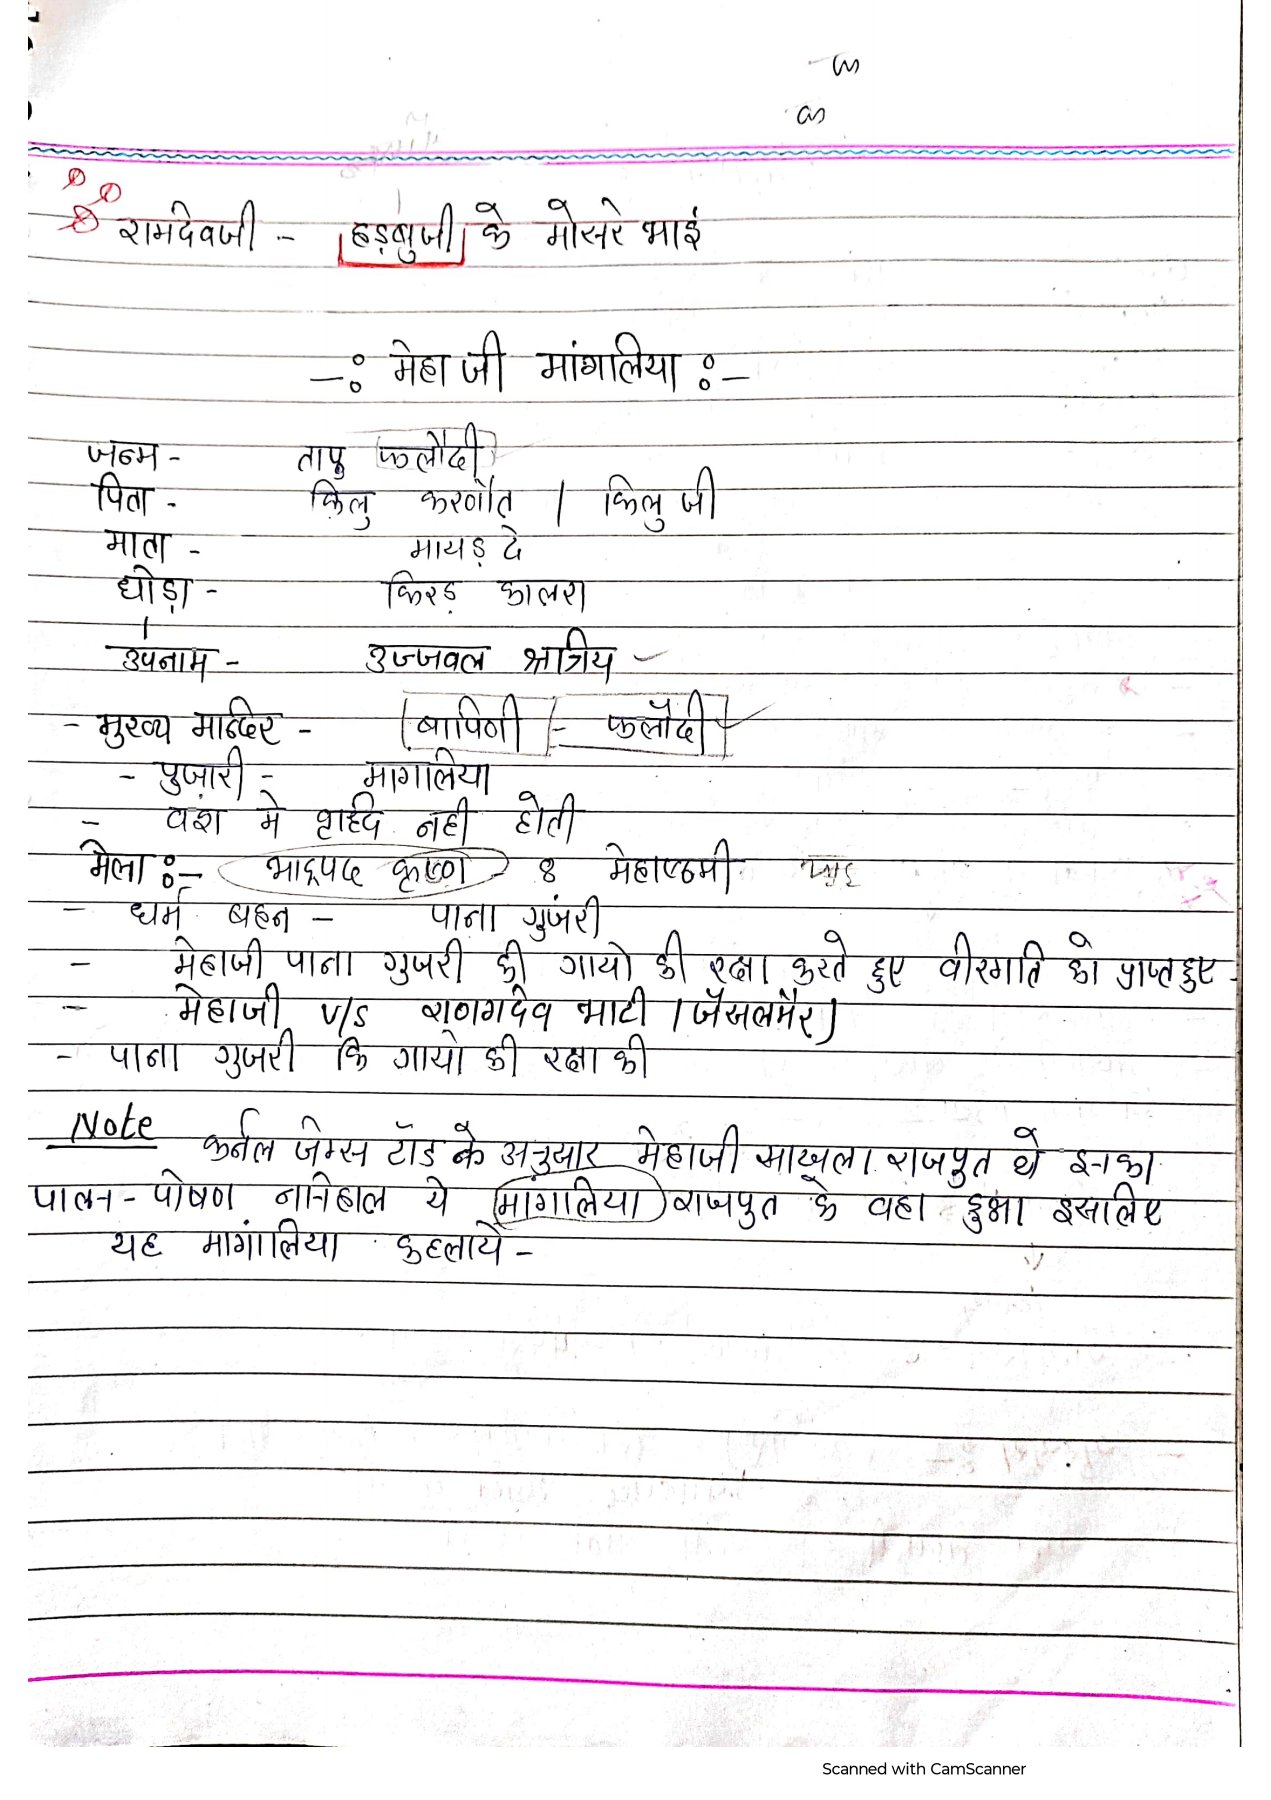 रामदेवजी - हड़बुजी के मोसेरे भाई
-: मेहा जी मांगलिया :-
जन्म - तापु फलौदी
पिता - किलु करणोत / किलु जी
माता - मायड़ दे
घोड़ा - किरड़ कालरा
उपनाम - उज्जवल क्षत्रिय
- मुख्य मन्दिर - बापिणी - फलौदी
- पुजारी - मागालिया
- वंश मे वृद्धि नही होती
मेला :- भाद्रपद कृष्ण - 8 मेहाष्ठमी
- धर्म बहन - पाना गुजंरी
- मेहाजी पाना गुजरी की गायो की रक्षा करते हुए वीरगति को प्राप्त हुए -
- मेहाजी v/s राणगदेव भाटी (जैसलमैर)
- पाना गुजरी कि गायो की रक्षा की
Note कर्नल जेम्स टॉड के अनुसार मेहाजी साखला राजपुत थे इनका
पालन - पोषण ननिहाल ये मांगालिया राजपुत के वहा हुआ इसलिए
यह मागांलिया कहलाये -
Scanned with CamScanner